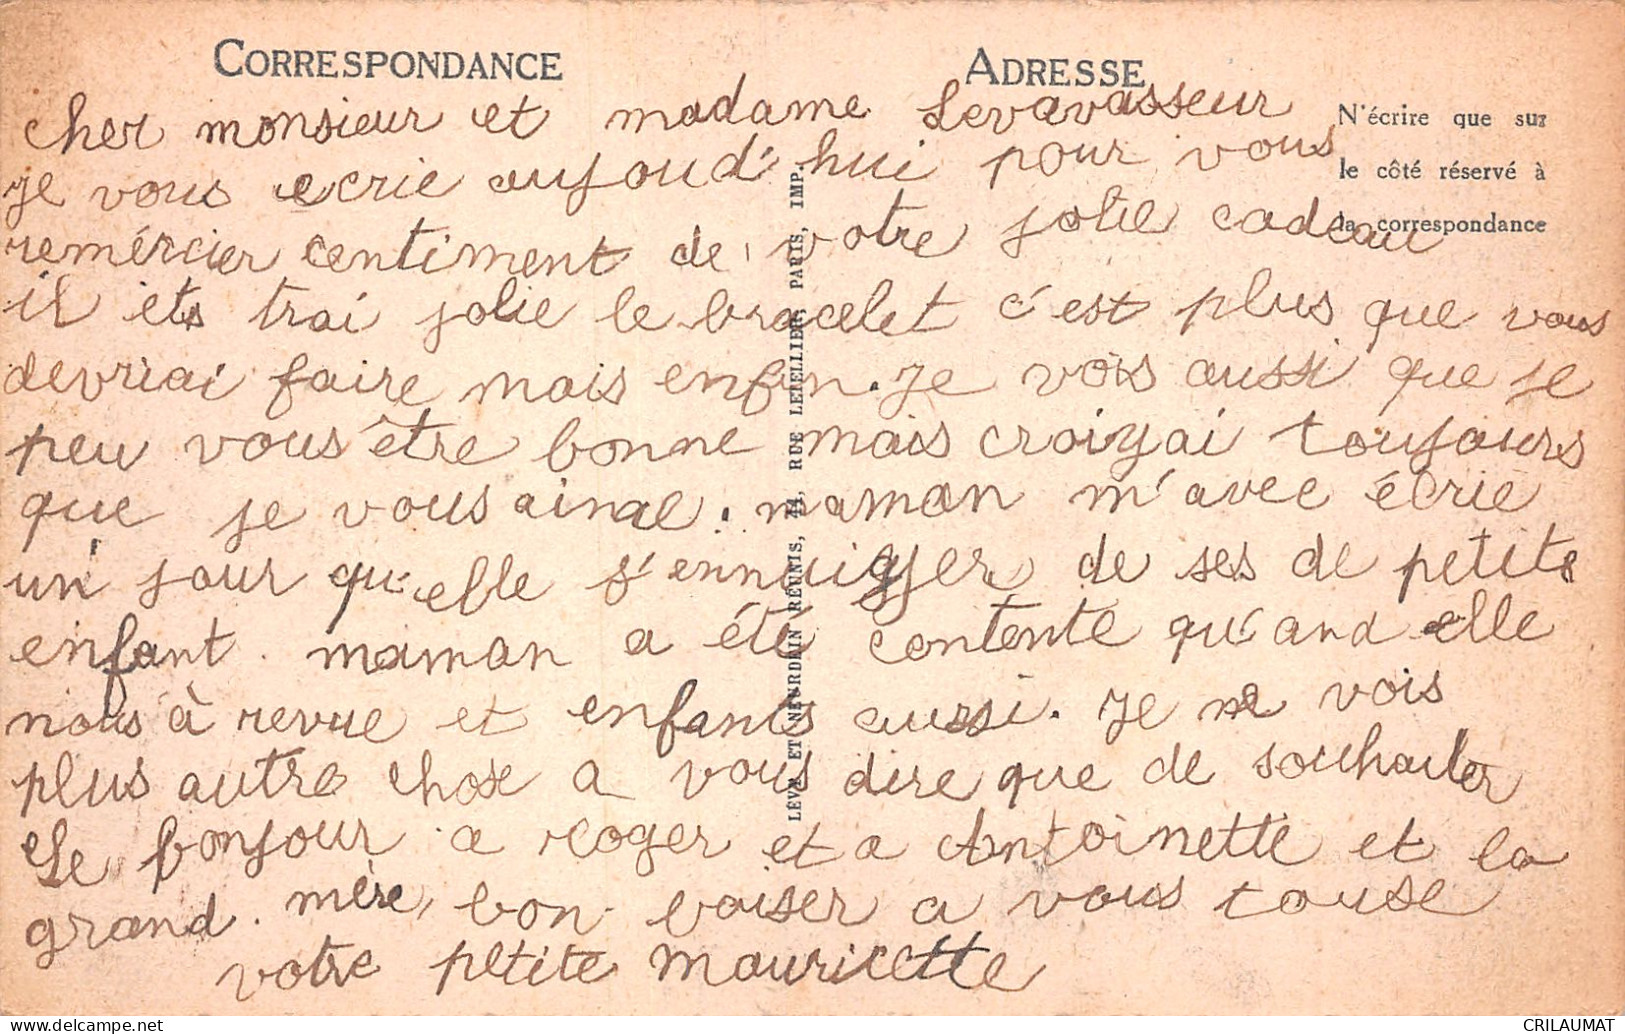 CORRESPONDANCE
ADRESSE
cher monsieur et madame Levavasseur
Je vous ecrie aujoud'hui pour vous
remércier centiment de votre jolie cadeau
il ets trai jolie le bracelet c'est plus que vous
devriai faire mais enfin. Je vois aussi que je
peu vous être bonne mais croiyai toujours
que je vous aime. maman m'avec écrie
un jour qu'elle s'ennuigjer de ses de petite
enfant. maman a été contente qu'and elle
nous à revue et enfants aussi. Je ne vois
plus autre chose a vous dire que de souhaiter
le bonjour a roger et a Antoinette et la
grand. mère, bon baiser a vous touse
votre petite Mauricette
N'écrire que sur
le côté réservé à
la correspondance
LÉVY ET NEURDEIN RÉUNIS, 44, RUE LETELLIER, PARIS, IMP.
CRILAUMAT